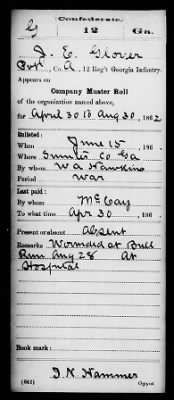 Confederate.
G 12 Ga.
J. E. Glover
Pvt, Co. A, 12 Reg't Georgia Infantry.
Appears on
Company Muster Roll
of the organization named above,
for April 30 to Aug 30, 1862
Enlisted:
When June 15, 186
Where Sumter Co Ga
By whom W A Hawkins
Period War
Last paid:
By whom McCay
To what time Apr 30, 186
Present or absent Absent
Remarks Wounded at Bull
Run Aug 28 At
Hospital
Book mark:
J. N. Hammer
(642) Copyist.